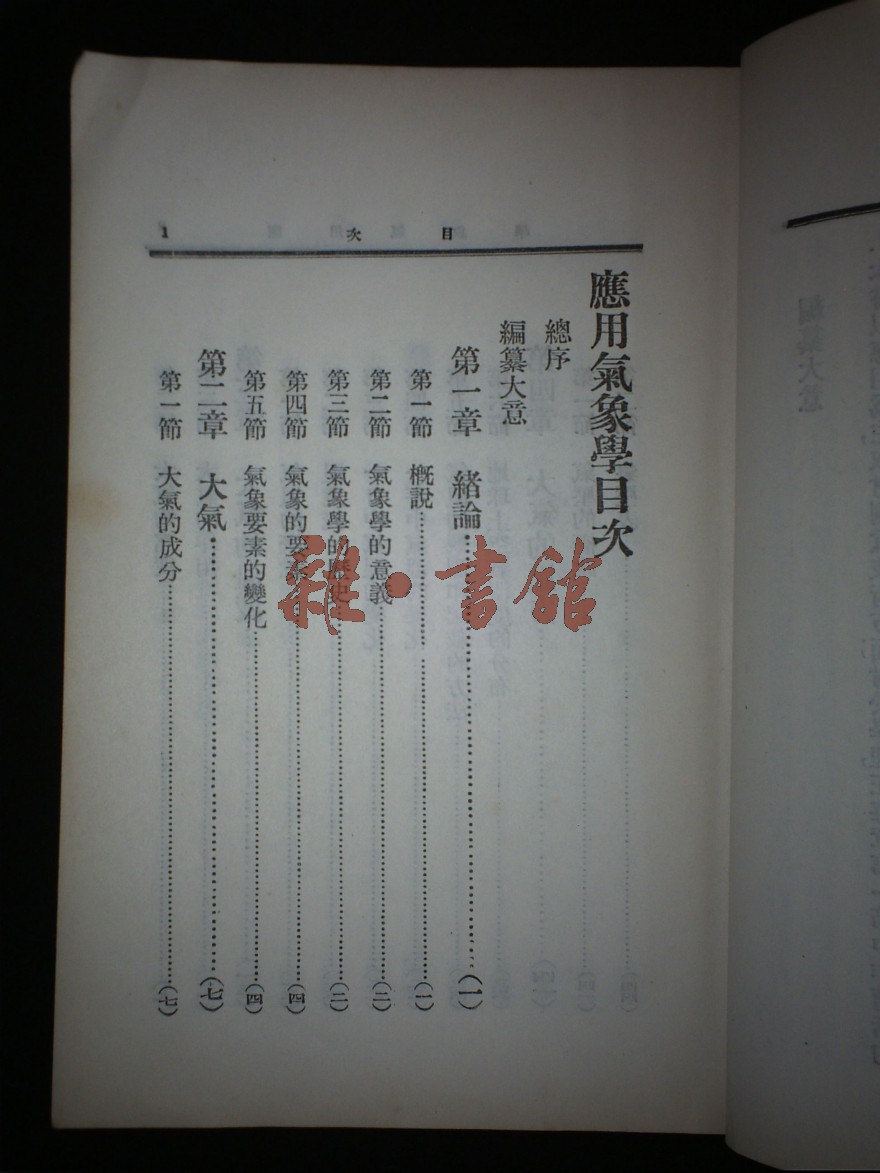 目次
1
應用氣象學目次
總序
編纂大意
第一章 緒論……(一)
第一節 概説……(一)
第二節 氣象學的意義……(二)
第三節 氣象學的歷史……(二)
第四節 氣象的要素……(四)
第五節 氣象要素的變化……(四)
第二章 大氣……(七)
第一節 大氣的成分……(七)
雜·書館